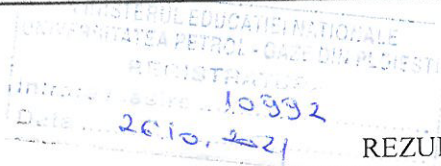 MINISTERUL EDUCATIEI NATIONALE
UNIVERSITATEA PETROL - GAZE DIN PLOIESTI
REGISTRATURA
10992
Data ..... 26.10. 2021
REZU